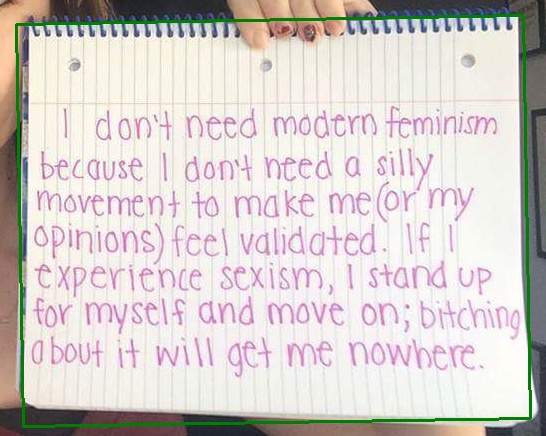 I don't need modern feminism
because I don't need a silly
movement to make me (or my
opinions) feel validated. If I
experience sexism, I stand up
for myself and move on; bitching
about it will get me nowhere.